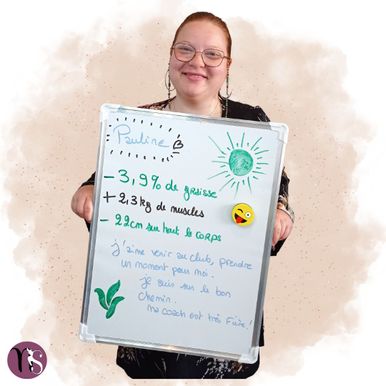 Pauline
- 3,9% de graisse
+ 2,3 kg de muscles
- 22cm sur tout le corps
j'aime venir au club, prendre
un moment pour moi.
je suis sur le bon
chemin.
Ma coach est très fière.